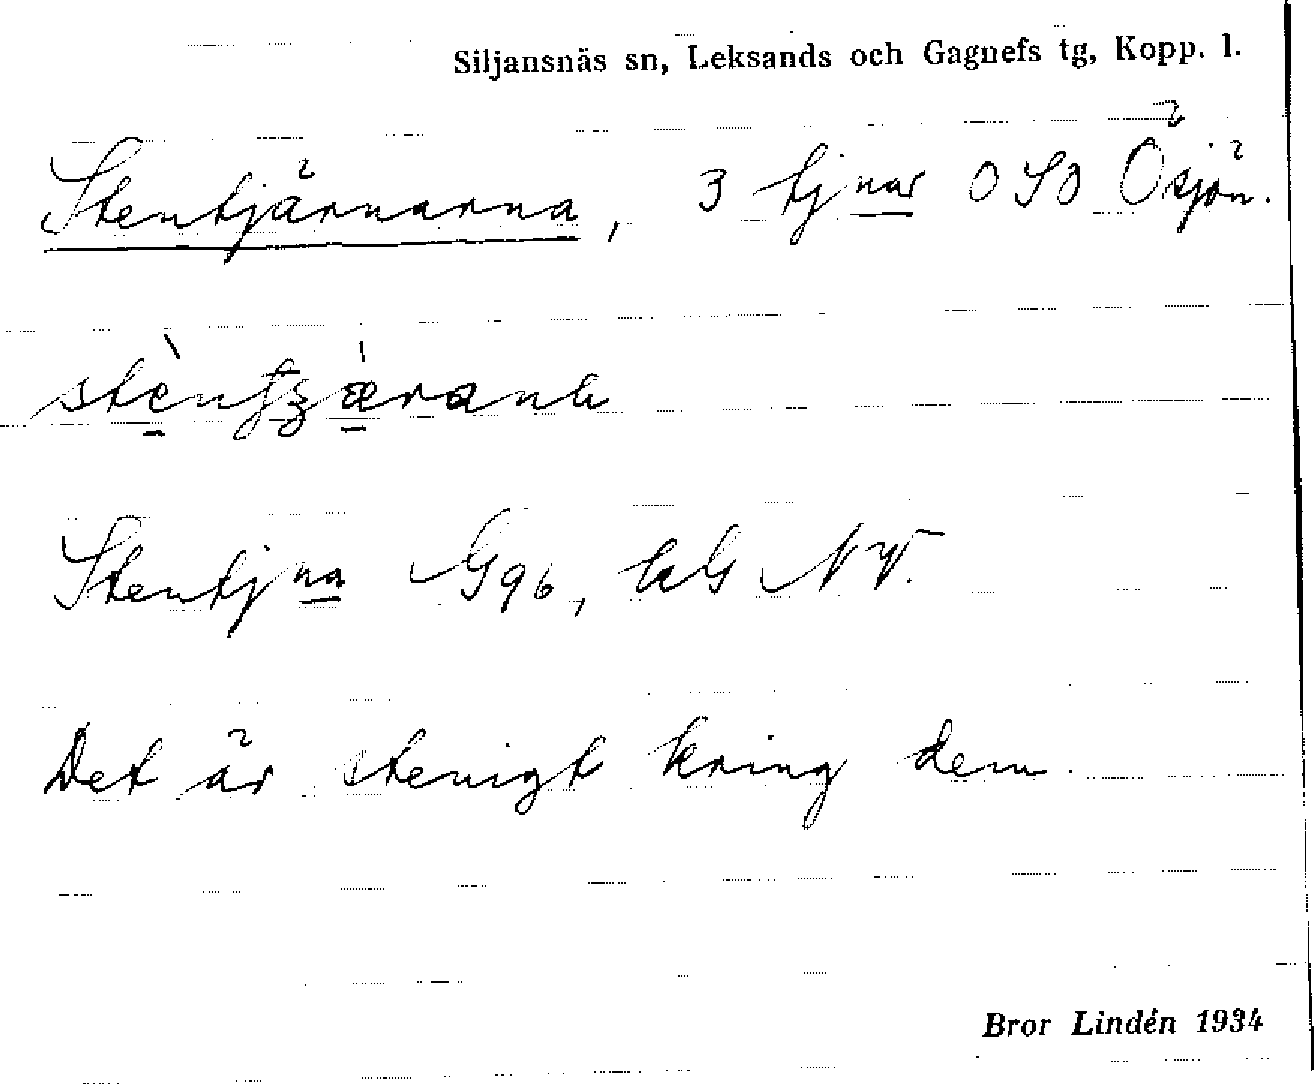 Siljansnäs sn, Leksands och Gagnefs tg, Kopp. l.
Stentjärnarna, 3 tjnar OSO Ösjön.
Stentjna G96, NV.
Det är stenigt kring dem.
Bror Lindén 1934